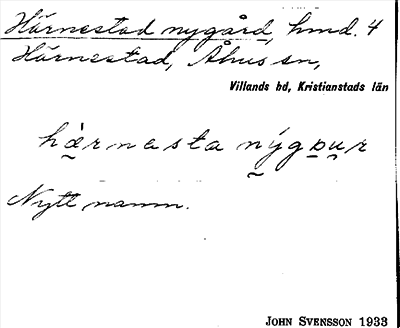 Härnestad nygård, hmd. 4
Härnestad, Åhus sn,
Villands hd, Kristianstads län
härnesta nýgɒu̯r
Nytt namn.
JOHN SVENSSON 1933